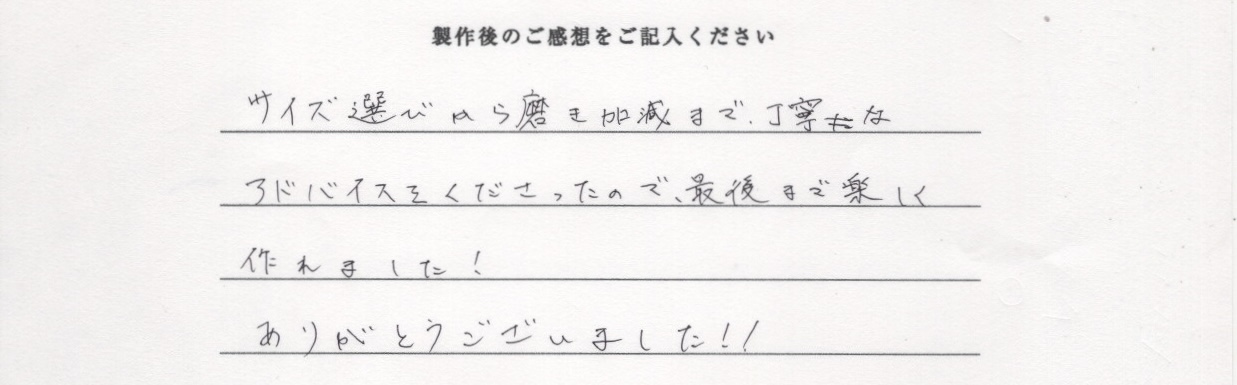 製作後のご感想をご記入ください
サイズ選びから磨き加減まで、丁寧な
アドバイスをくださったので、最後まで楽しく
作れました!
ありがとうございました!!